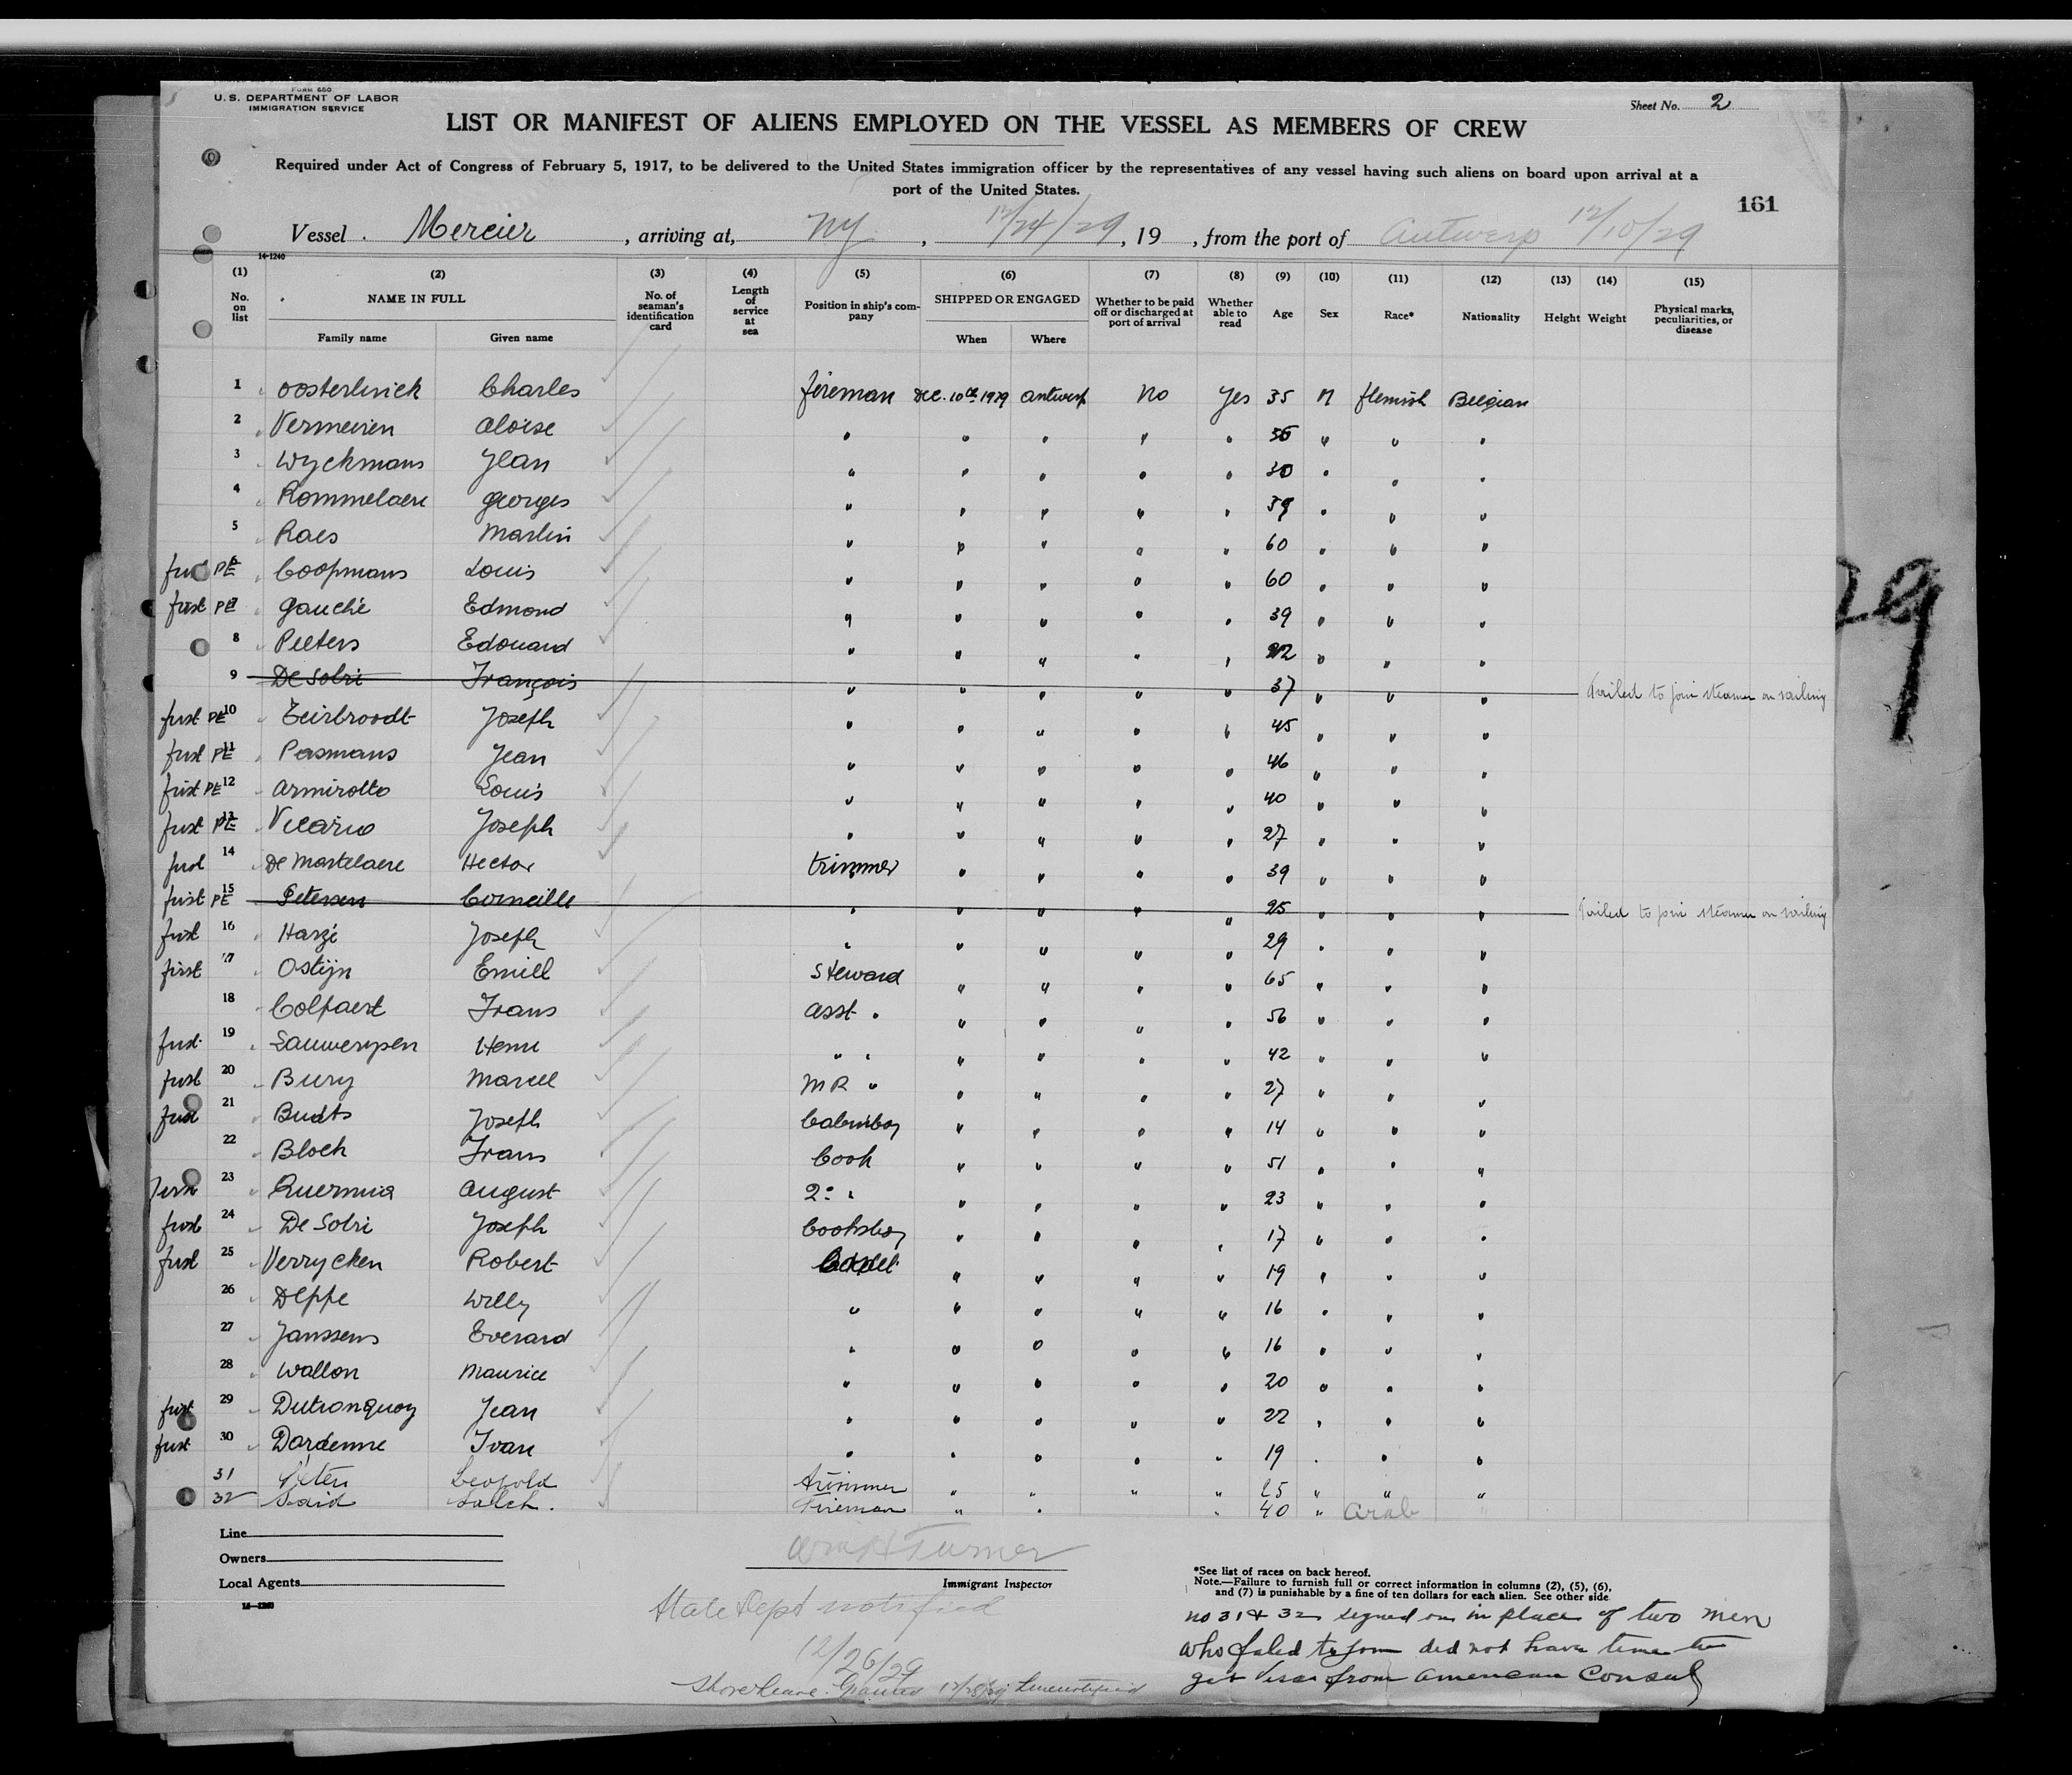 FORM 680
U. S. DEPARTMENT OF LABOR
IMMIGRATION SERVICE
Sheet No. 2
LIST OR MANIFEST OF ALIENS EMPLOYED ON THE VESSEL AS MEMBERS OF CREW
Required under Act of Congress of February 5, 1917, to be delivered to the United States immigration officer by the representatives of any vessel having such aliens on board upon arrival at a
port of the United States.
161
Vessel Mercier, arriving at, NY, 12/24/29, 19 , from the port of Antwerp 12/10/29
14-1240
(1) (2) (3) (4) (5) (6) (7) (8) (9) (10) (11) (12) (13) (14) (15)
No. on list NAME IN FULL Family name Given name No. of seaman's identification card Length of service at sea Position in ship's company SHIPPED OR ENGAGED When Where Whether to be paid off or discharged at port of arrival Whether able to read Age Sex Race* Nationality Height Weight Physical marks, peculiarities, or disease
1 Oosterlinck Charles fireman Dec. 10th 1929 Antwerp No Yes 35 M flemish Belgian
2 Vermeiren Aloise " " " " " 36 " " "
3 Wyckmans Jean " " " " " 30 " " "
4 Rommelaere Georges " " " " " 39 " " "
5 Raes Martin " " " " " 60 " " "
first PE 6 Coopmans Louis " " " " " 60 " " "
first PE 7 Gauché Edmond " " " " " 39 " " "
8 Peeters Edouard " " " " " 22 " " "
9 De Sobri François " " " " " 37 " " " Failed to join steamer on sailing
first PE 10 Joseph " " " " " 45 " " "
first PE 11 Pasmans Jean " " " " " 46 " " "
first PE 12 Armirotto Louis " " " " " 40 " " "
first PE 13 Vicario Joseph " " " " " 27 " " "
first 14 De Martelaere Hector trimmer " " " " 39 " " "
first PE 15 Petersen Corneille " " " " " 25 " " " Failed to join steamer on sailing
first 16 Harzé Joseph " " " " " 29 " " "
first 17 Ostijn Emill Steward " " " " 65 " " "
18 Colpaert Frans asst " " " " " 56 " " "
first 19 Lauwerypen Henri " " " " " " 42 " " "
first 20 Bury Marcel MR " " " " " 27 " " "
first 21 Budts Joseph Cabinboy " " " " 14 " " "
22 Bloch Frans Cook " " " " 51 " " "
first 23 August 2° " " " " " 23 " " "
first 24 De Sobri Joseph Cooksboy " " " " 17 " " "
first 25 Verrycken Robert Cadet " " " " 19 " " "
26 Deppe Willy " " " " " 16 " " "
27 Janssens Everard " " " " " 16 " " "
28 Wallon Maurice " " " " " 20 " " "
first 29 Dutronquoy Jean " " " " " 22 " " "
first 30 Dardenne Ivan " " " " " 19 " " "
31 Leopold trimmer " " " " 25 " " "
32 Said Saleh. Fireman " " " 40 " Arab "
Line
Owners
Local Agents
14-1240
Wm H Turner
Immigrant Inspector
*See list of races on back hereof.
Note.—Failure to furnish full or correct information in columns (2), (5), (6),
and (7) is punishable by a fine of ten dollars for each alien. See other side.
State Dept notified
12/26/29
Shore leave Granted 12/28/29 Line notified
no 31 & 32 signed on in place of two men
who failed to join did not have time to
get visas from American Consul
29